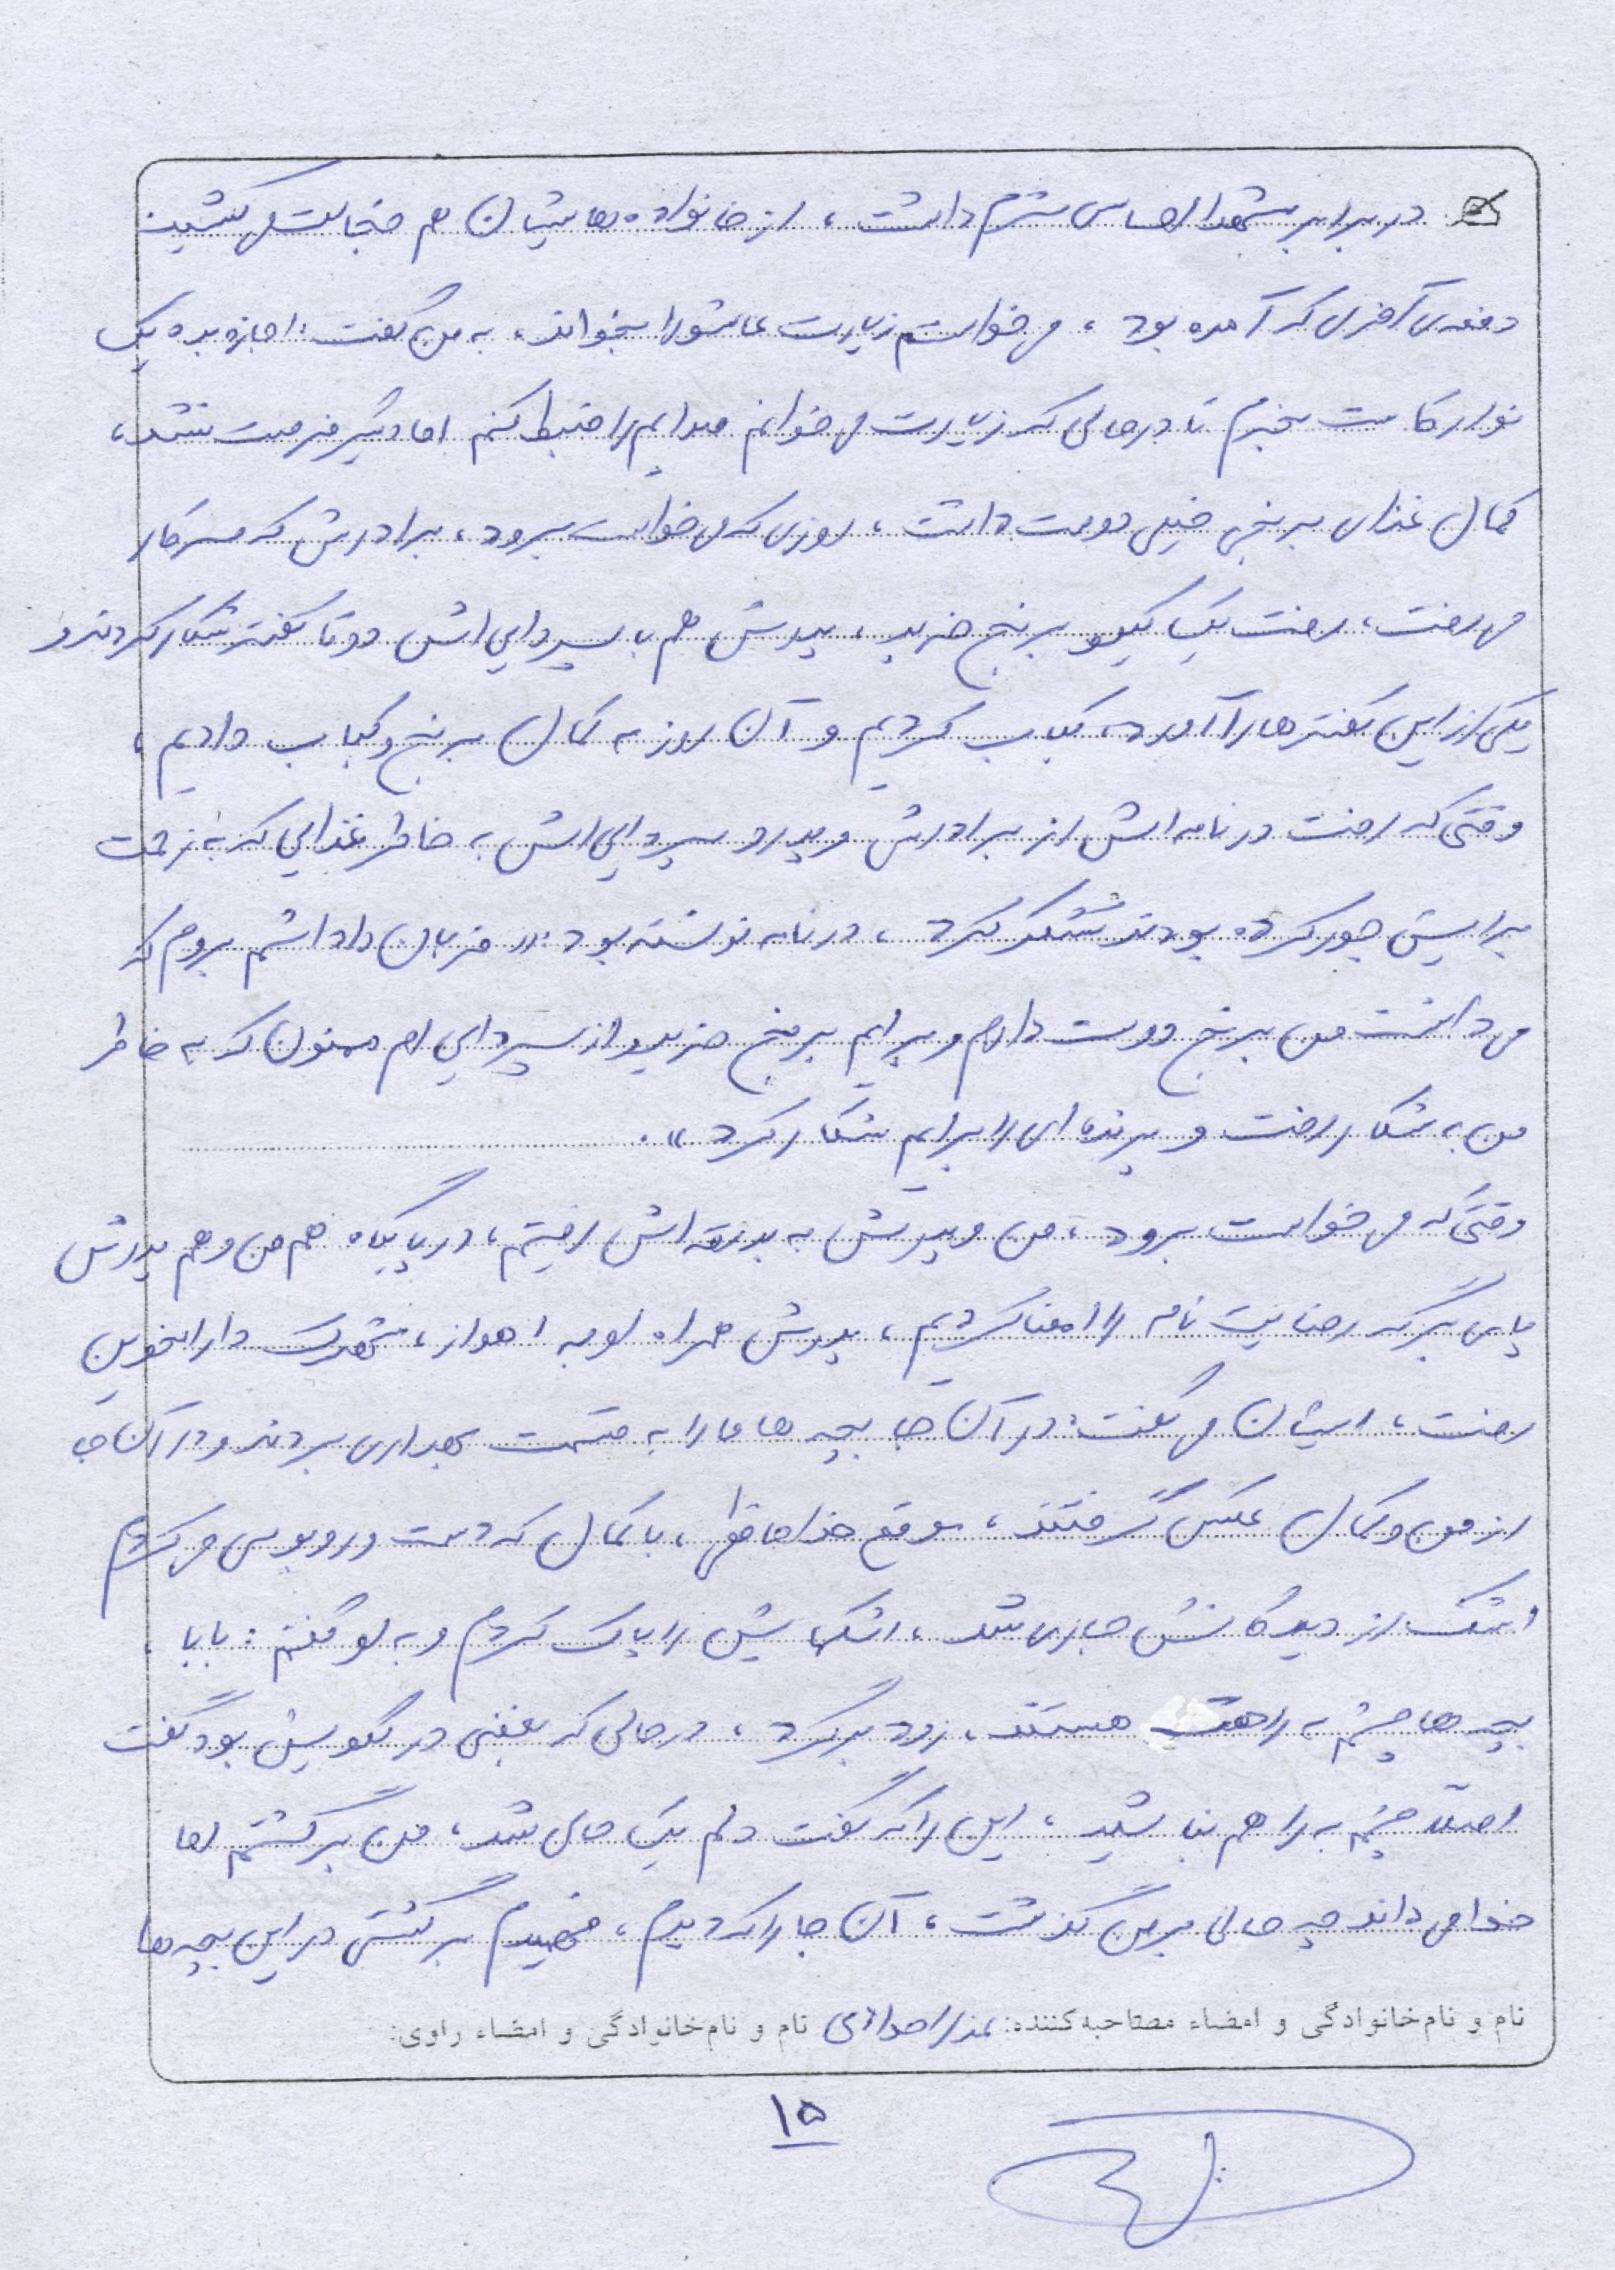 در برابر شهدا احساس شرم داشت، از خانواده هایشان هم خجالت می کشید.
دفعه ی آخری که آمده بود، می خواست زیارت عاشورا بخواند، به من گفت: اجازه بده یک
نوار کاست بخرم تا در حالی که زیارت می خوانم صدایم را ضبط کنم اما دیگر فرصت نشد،
کمال غذای برنجی خیلی دوست داشت، روزی که می خواست برود، برادرش که سر کار
می رفت، رفت یک کیلو برنج خرید، پدرش هم با پسردایی اش دو تا کفتر شکار کردند و
یکی از این کفترها را آورد، کباب کردیم و آن روز به کمال برنج و کباب دادیم،
وقتی که رفت در نامه اش از برادرش و پدر و پسردایی اش به خاطر غذایی که به زحمت
برایش جور کرده بودند تشکر کرد، در نامه نوشته بود: «قربان داداشم بروم که
می دانست من برنج دوست دارم و برایم برنج خرید و از پسردایی ام ممنون که به خاطر
من به شکار رفت و پرنده ای را برایم شکار کرد».
وقتی که می خواست برود، من و پدرش به بدرقه اش رفتیم، در پایگاه هم من و هم پدرش
پای برگه رضایت نامه را امضا کردیم، پدرش همراه او به اهواز، شهرک دارخوین
رفت، ایشان می گفت: در آن جا بچه ها ما را به قسمت بهداری بردند و در آن جا
از من و کمال عکس گرفتند، موقع خداحافظی، با کمال که دست و روبوسی می کردم
اشک از دیدگانش جاری شد، اشکهایش را پاک کردم و به او گفتم: بابا،
بچه ها چشم به راهت هستند، زود برگرد، در حالی که بغضی در گلویش بود گفت
اصلا چشم به راهم نباشید، این را که گفت دلم یک حالی شد، من برگشتم اما
خدا می داند چه حالی بر من گذشت، آن جا را که دیدم، فهمیدم برگشتی در این بچه ها
نام و نام خانوادگی و امضاء مصاحبه کننده: عذرا نام و نام خانوادگی و امضاء راوی:
۱۵